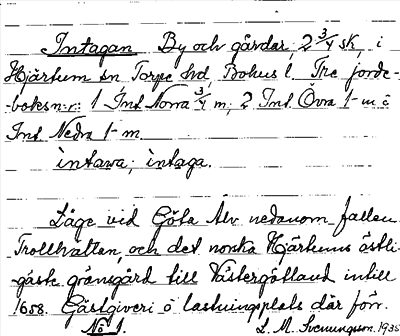 Intagan By och gårdar, 2 3/4 sk i
Hjärtum sn Torpe hd Bohus l. Tre jorde-
boksn:r: 1 Int Norra 3/4 m; 2 Int. Övra 1-m o
Int Nedra 1-m
intawa; intaga.
Läge vid Göta Älv nedanom fallen
Trollhättan, och det norska Hjärtums östli-
gaste gränsgård till Västergötland intill
1658. Gästgiveri o lastningsplats där förr.
No 1. L. M. Svenungsson. 1935